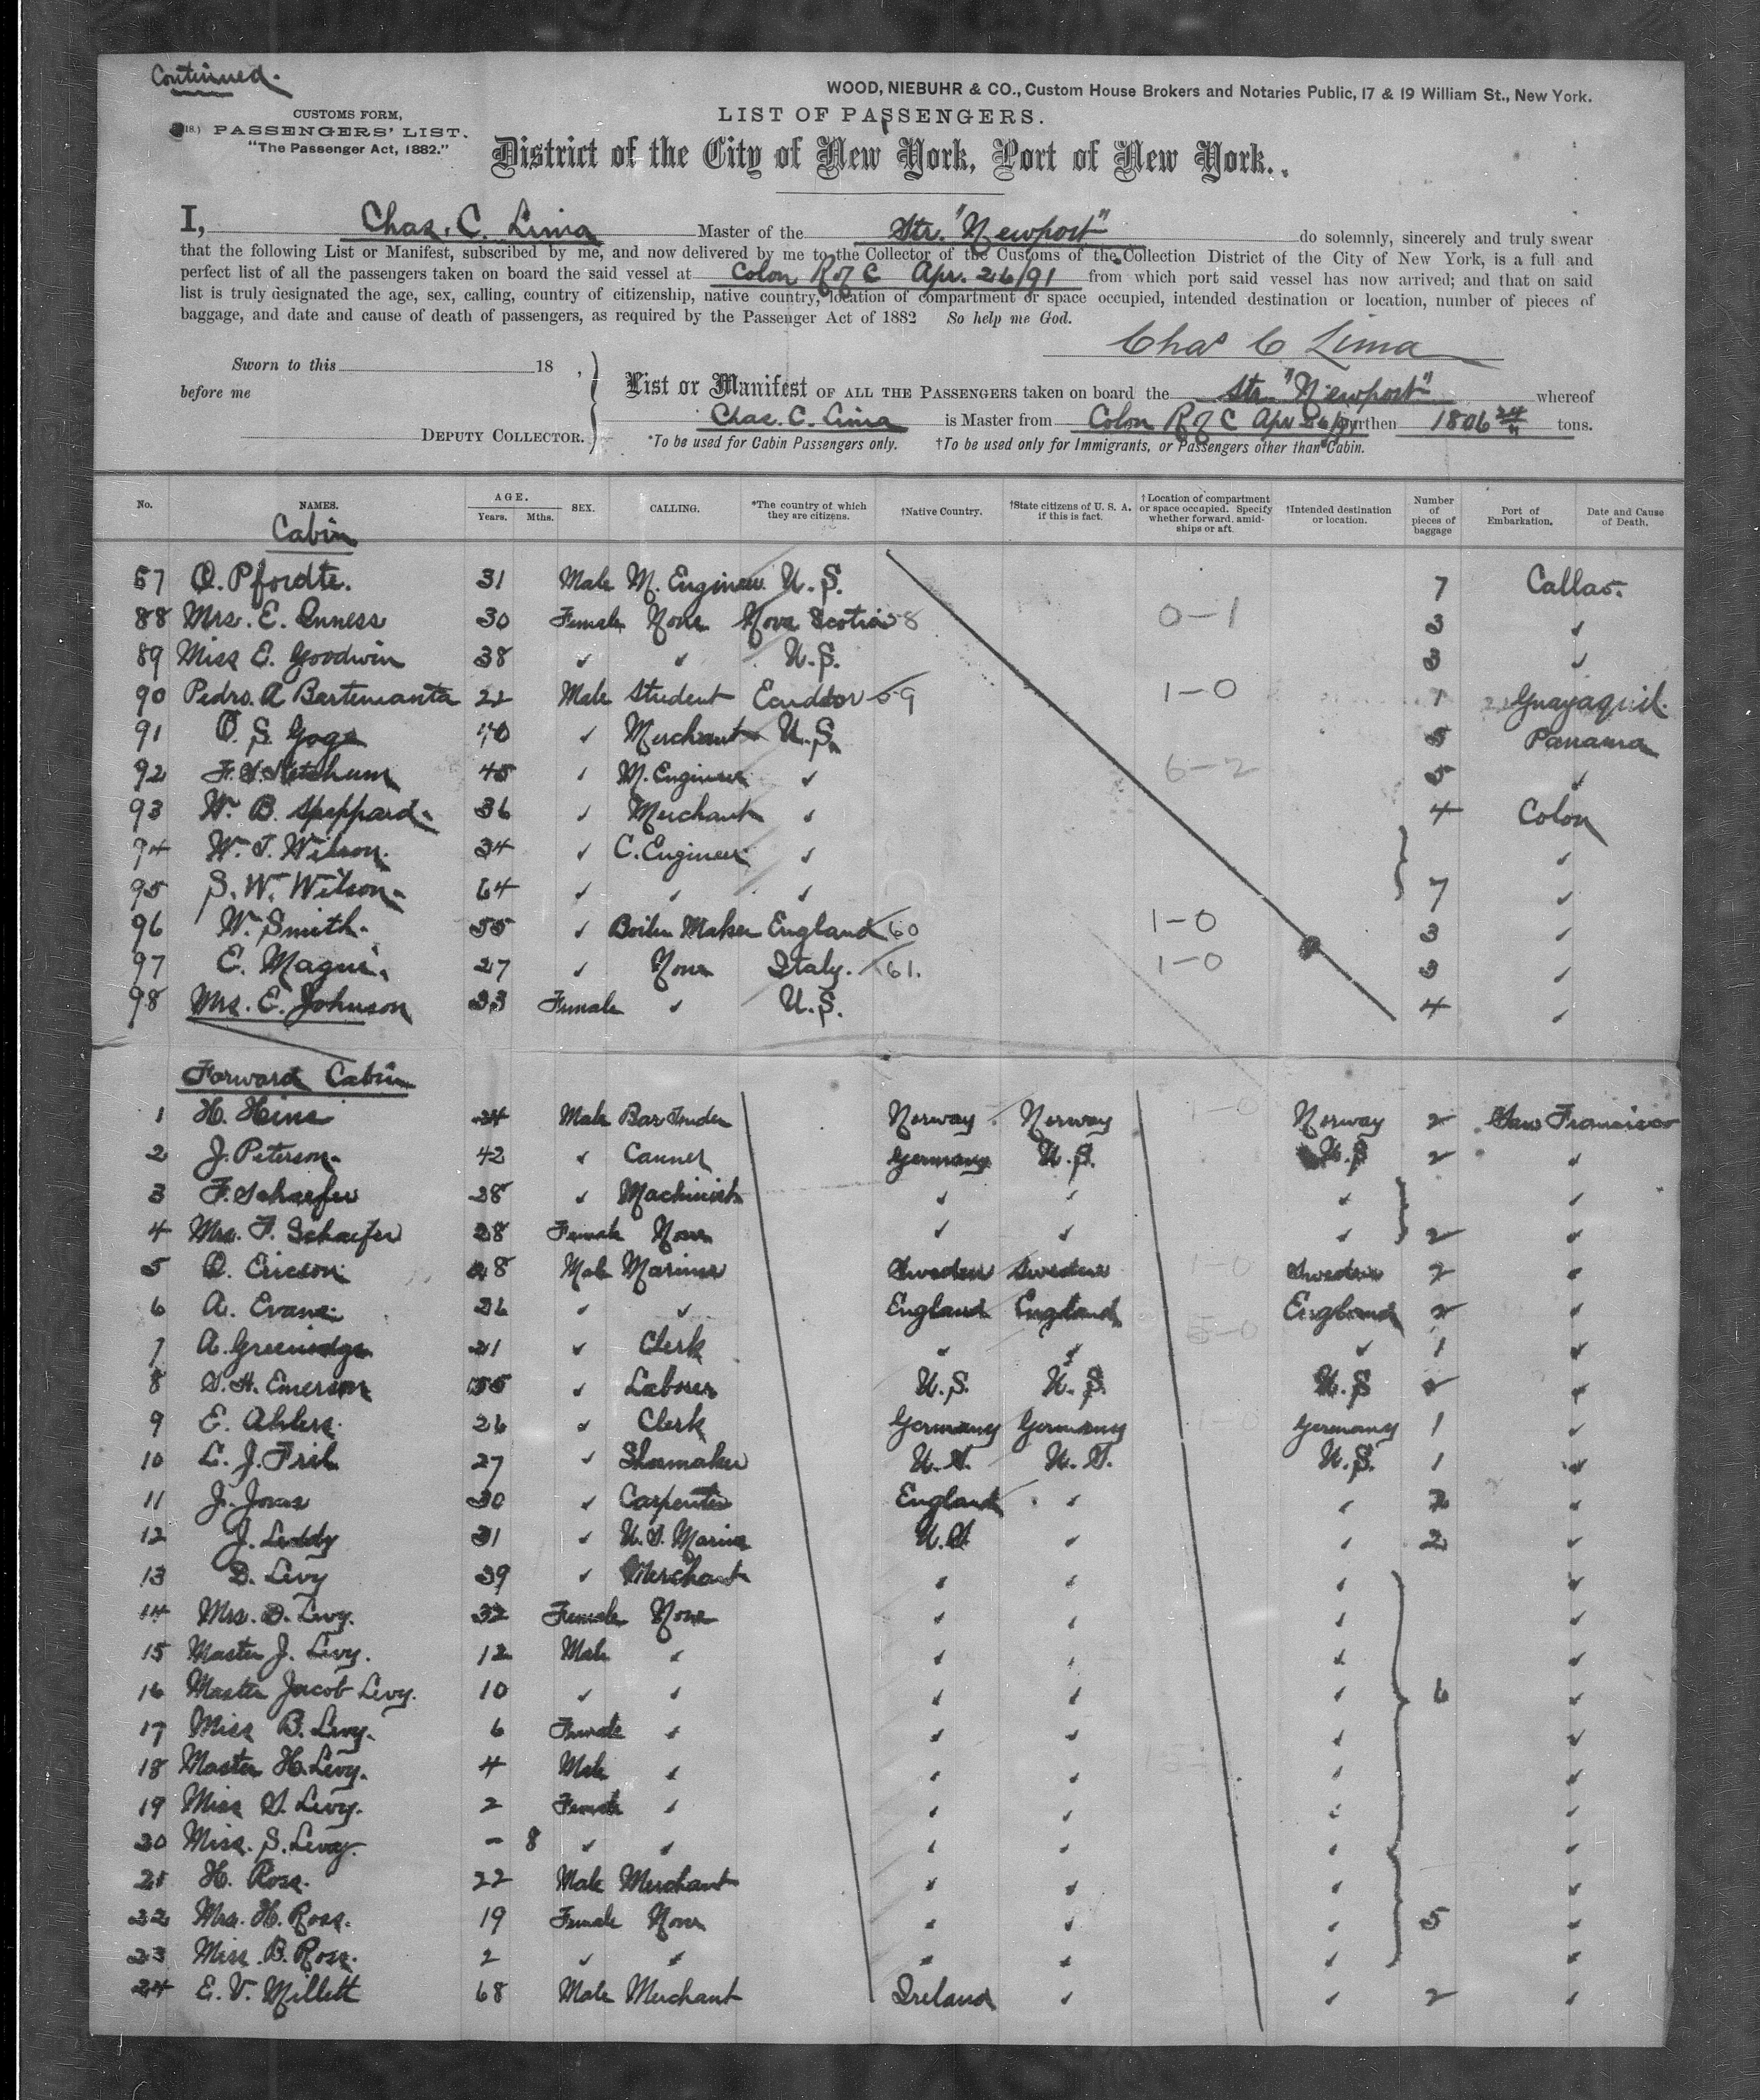 Continued.
WOOD, NIEBUHR & CO., Custom House Brokers and Notaries Public, 17 & 19 William St., New York.
CUSTOMS FORM,
LIST OF PASSENGERS.
PASSENGERS' LIST.
"The Passenger Act, 1882."
District of the City of New York, Port of New York.
I, Chas. C. Lima Master of the Str. "Newport" do solemnly, sincerely and truly swear
that the following List or Manifest, subscribed by me, and now delivered by me to the Collector of the Customs of the Collection District of the City of New York, is a full and
perfect list of all the passengers taken on board the said vessel at Colon R of C Apr. 26/91 from which port said vessel has now arrived; and that on said
list is truly designated the age, sex, calling, country of citizenship, native country, location of compartment or space occupied, intended destination or location, number of pieces of
baggage, and date and cause of death of passengers, as required by the Passenger Act of 1882 So help me God.
Chas C Lima
Sworn to this 18 ,
before me
DEPUTY COLLECTOR.
List or Manifest OF ALL THE PASSENGERS taken on board the Str. "Newport" whereof
Chas. C. Lima is Master from Colon R of C Apr 26/91 burthen 1806 24/ tons.
*To be used for Cabin Passengers only. †To be used only for Immigrants, or Passengers other than Cabin.
No. NAMES. AGE. Years. Mths. SEX. CALLING. *The country of which they are citizens. †Native Country. †State citizens of U. S. A. if this is fact. †Location of compartment or space occupied. Specify whether forward, amidships or aft. †Intended destination or location. Number of pieces of baggage Port of Embarkation. Date and Cause of Death.
Cabin
87 O. Pfordte. 31 Male M. Engineer U.S. 7 Callao.
88 Mrs. E. Inness 30 Female None Nova Scotia 58 0-1 3 ✓
89 Miss E. Goodwin 38 ✓ ✓ U.S. 3 ✓
90 Pedro A 22 Male Student Ecuador 59 1-0 1 Guayaquil.
91 O. S. Goga 40 ✓ Merchant U.S. 5 Panama
92 Ketchum 45 ✓ M. Engineer ✓ 6-2 5 ✓
93 W. B. Sheppard. 36 ✓ Merchant ✓ 4 Colon
94 W. T. Wilson. 34 ✓ C. Engineer ✓ ✓
95 S. W. Wilson. 64 ✓ ✓ ✓ 7 ✓
96 W. Smith. 55 ✓ Boiler Maker England 60 1-0 3 ✓
97 E. Magui. 27 ✓ None Italy. 61. 1-0 3 ✓
98 Mrs. E. Johnson 33 Female ✓ U.S. 4 ✓
Forward Cabin
1 H. Heins 24 Male Bar Tender Norway Norway 1-0 Norway 2 San Francisco
2 J. Peterson. 42 ✓ Canner Germany U.S. U.S 2 ✓
3 F. Schaefer 28 ✓ Machinist ✓ ✓ ✓ ✓
4 Mrs. F. Schaefer 28 Female None ✓ ✓ ✓ 2 ✓
5 O. Ericson. 28 Male Mariner Sweden Sweden 1-0 Sweden 2 ✓
6 A. Evans. 26 ✓ ✓ England England England 2 ✓
7 A. Greenidge 21 ✓ Clerk ✓ ✓ 5-0 ✓ 1 ✓
8 S. H. Emerson 55 ✓ Laborer U.S. U.S. U.S 2 ✓
9 E. Ahlers. 26 ✓ Clerk Germany Germany Germany 1 ✓
10 L. J. 27 ✓ Shoemaker U.S. U.S. U.S. 1 ✓
11 J. Jones 30 ✓ Carpenter England ✓ ✓ 2 ✓
12 J. Leddy 31 ✓ U.S. Marine U.S. ✓ ✓ 2 ✓
13 D. Levy 39 ✓ Merchant ✓ ✓ ✓ ✓
14 Mrs. D. Levy. 32 Female None ✓ ✓ ✓ ✓
15 Master J. Levy. 12 Male ✓ ✓ ✓ ✓ ✓
16 Master Jacob Levy. 10 ✓ ✓ ✓ ✓ ✓ 6 ✓
17 Miss B. Levy. 6 Female ✓ ✓ ✓ ✓ ✓
18 Master H. Levy. 4 Male ✓ ✓ ✓ ✓ ✓
19 Miss S. Levy. 2 Female ✓ ✓ ✓ ✓ ✓
20 Miss. S. Levy. - 8 ✓ ✓ ✓ ✓ ✓ ✓
21 H. Ross. 22 Male Merchant ✓ ✓ ✓ ✓
22 Mrs. H. Ross. 19 Female None ✓ ✓ ✓ 5 ✓
23 Miss. B. Ross. 2 ✓ ✓ ✓ ✓ ✓ ✓
24 E. V. Millett 68 Male Merchant Ireland ✓ ✓ 2 ✓